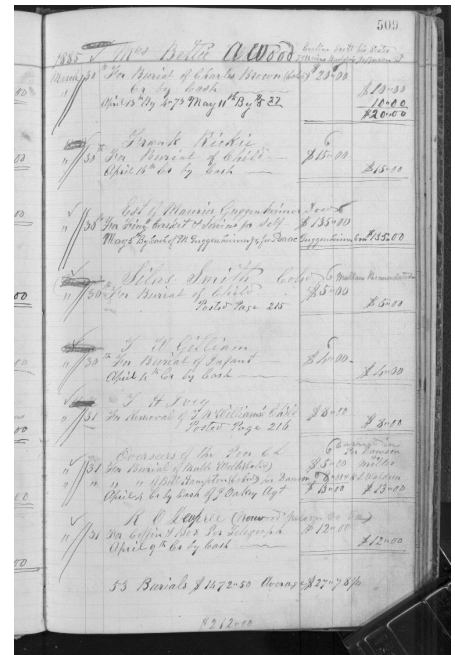 509
1885 Mrs Bettie A Wood
30th For Burial of Charles Brown (Col) $20-00
Cr by Cash $10-00
April 13th By 4-73 May 11th By 10-00
$20-00
Frank Rickie
" 30th For Burial of Child $15-00
April 16th Cr by Cash $15-00
Est of Maurice Guggenheimer Dr
" 30th For Casket & Services for Self $135-00
May 5th By Cash of M. Guggenheimer for Isaac Guggenheimer $135-00
Silas Smith Cold
" 30th For Burial of Child $5-00
Posted Page 215 $5-00
T W Gilliam
" 30th For Burial of Infant $4-00
April 1st Cr by Cash $4-00
T H Ivey
" 31 For Removal of Child $8-00
Posted Page 216 $8-00
Overseers of the Poor
" 31 For Burial of $5-00
" " " " Bill Hampton (Cold) for Dawson
April Cr by Cash of J Oakey Agt $13-00 $13-00
" 31 For Coffin & Box Per Telegraph $12-00
April 9th Cr by Cash $12-00
53 Burials $1472-50 Average $27-78
$212-00